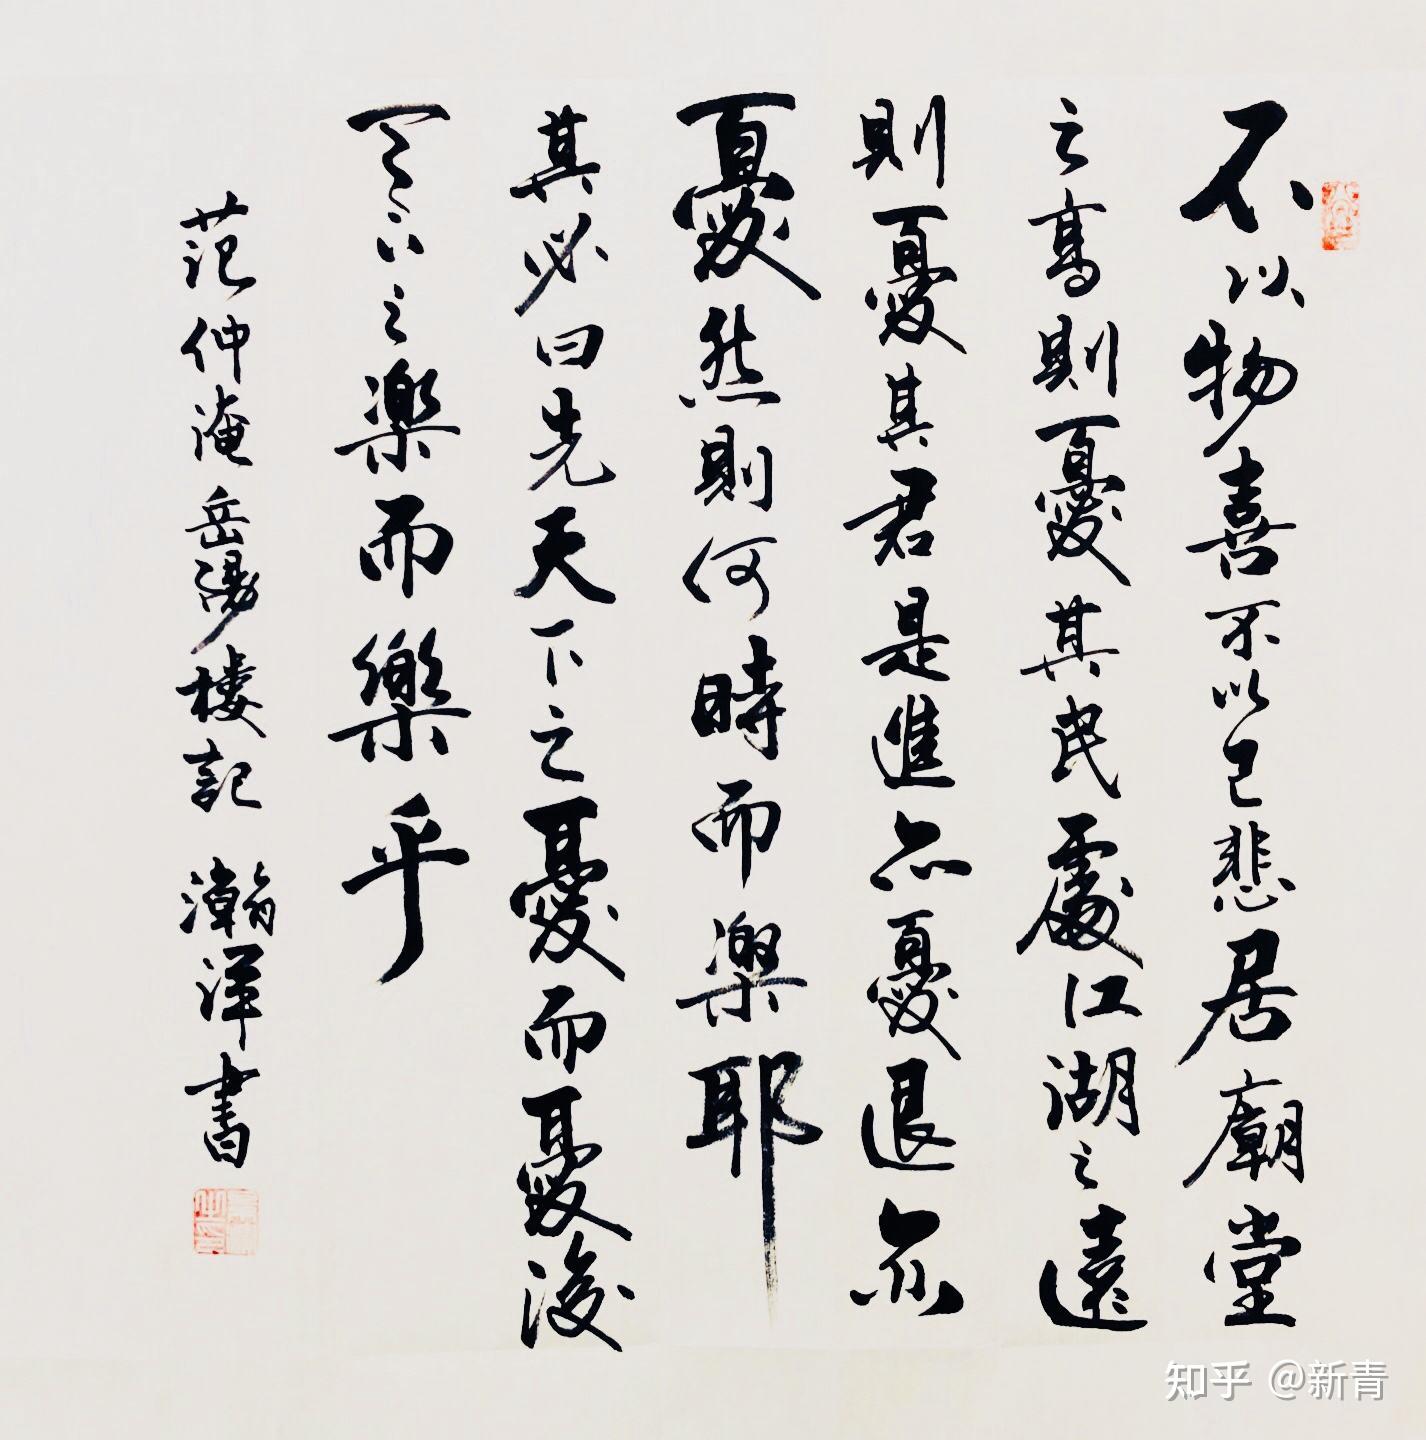 不以物喜不以己悲居廟堂
之高則憂其民處江湖之遠
則憂其君是進亦憂退亦
憂然則何時而樂耶
其必曰先天下之憂而憂後
天下之樂而樂乎
范仲淹岳陽樓記 瀚洋書
知乎 @新青